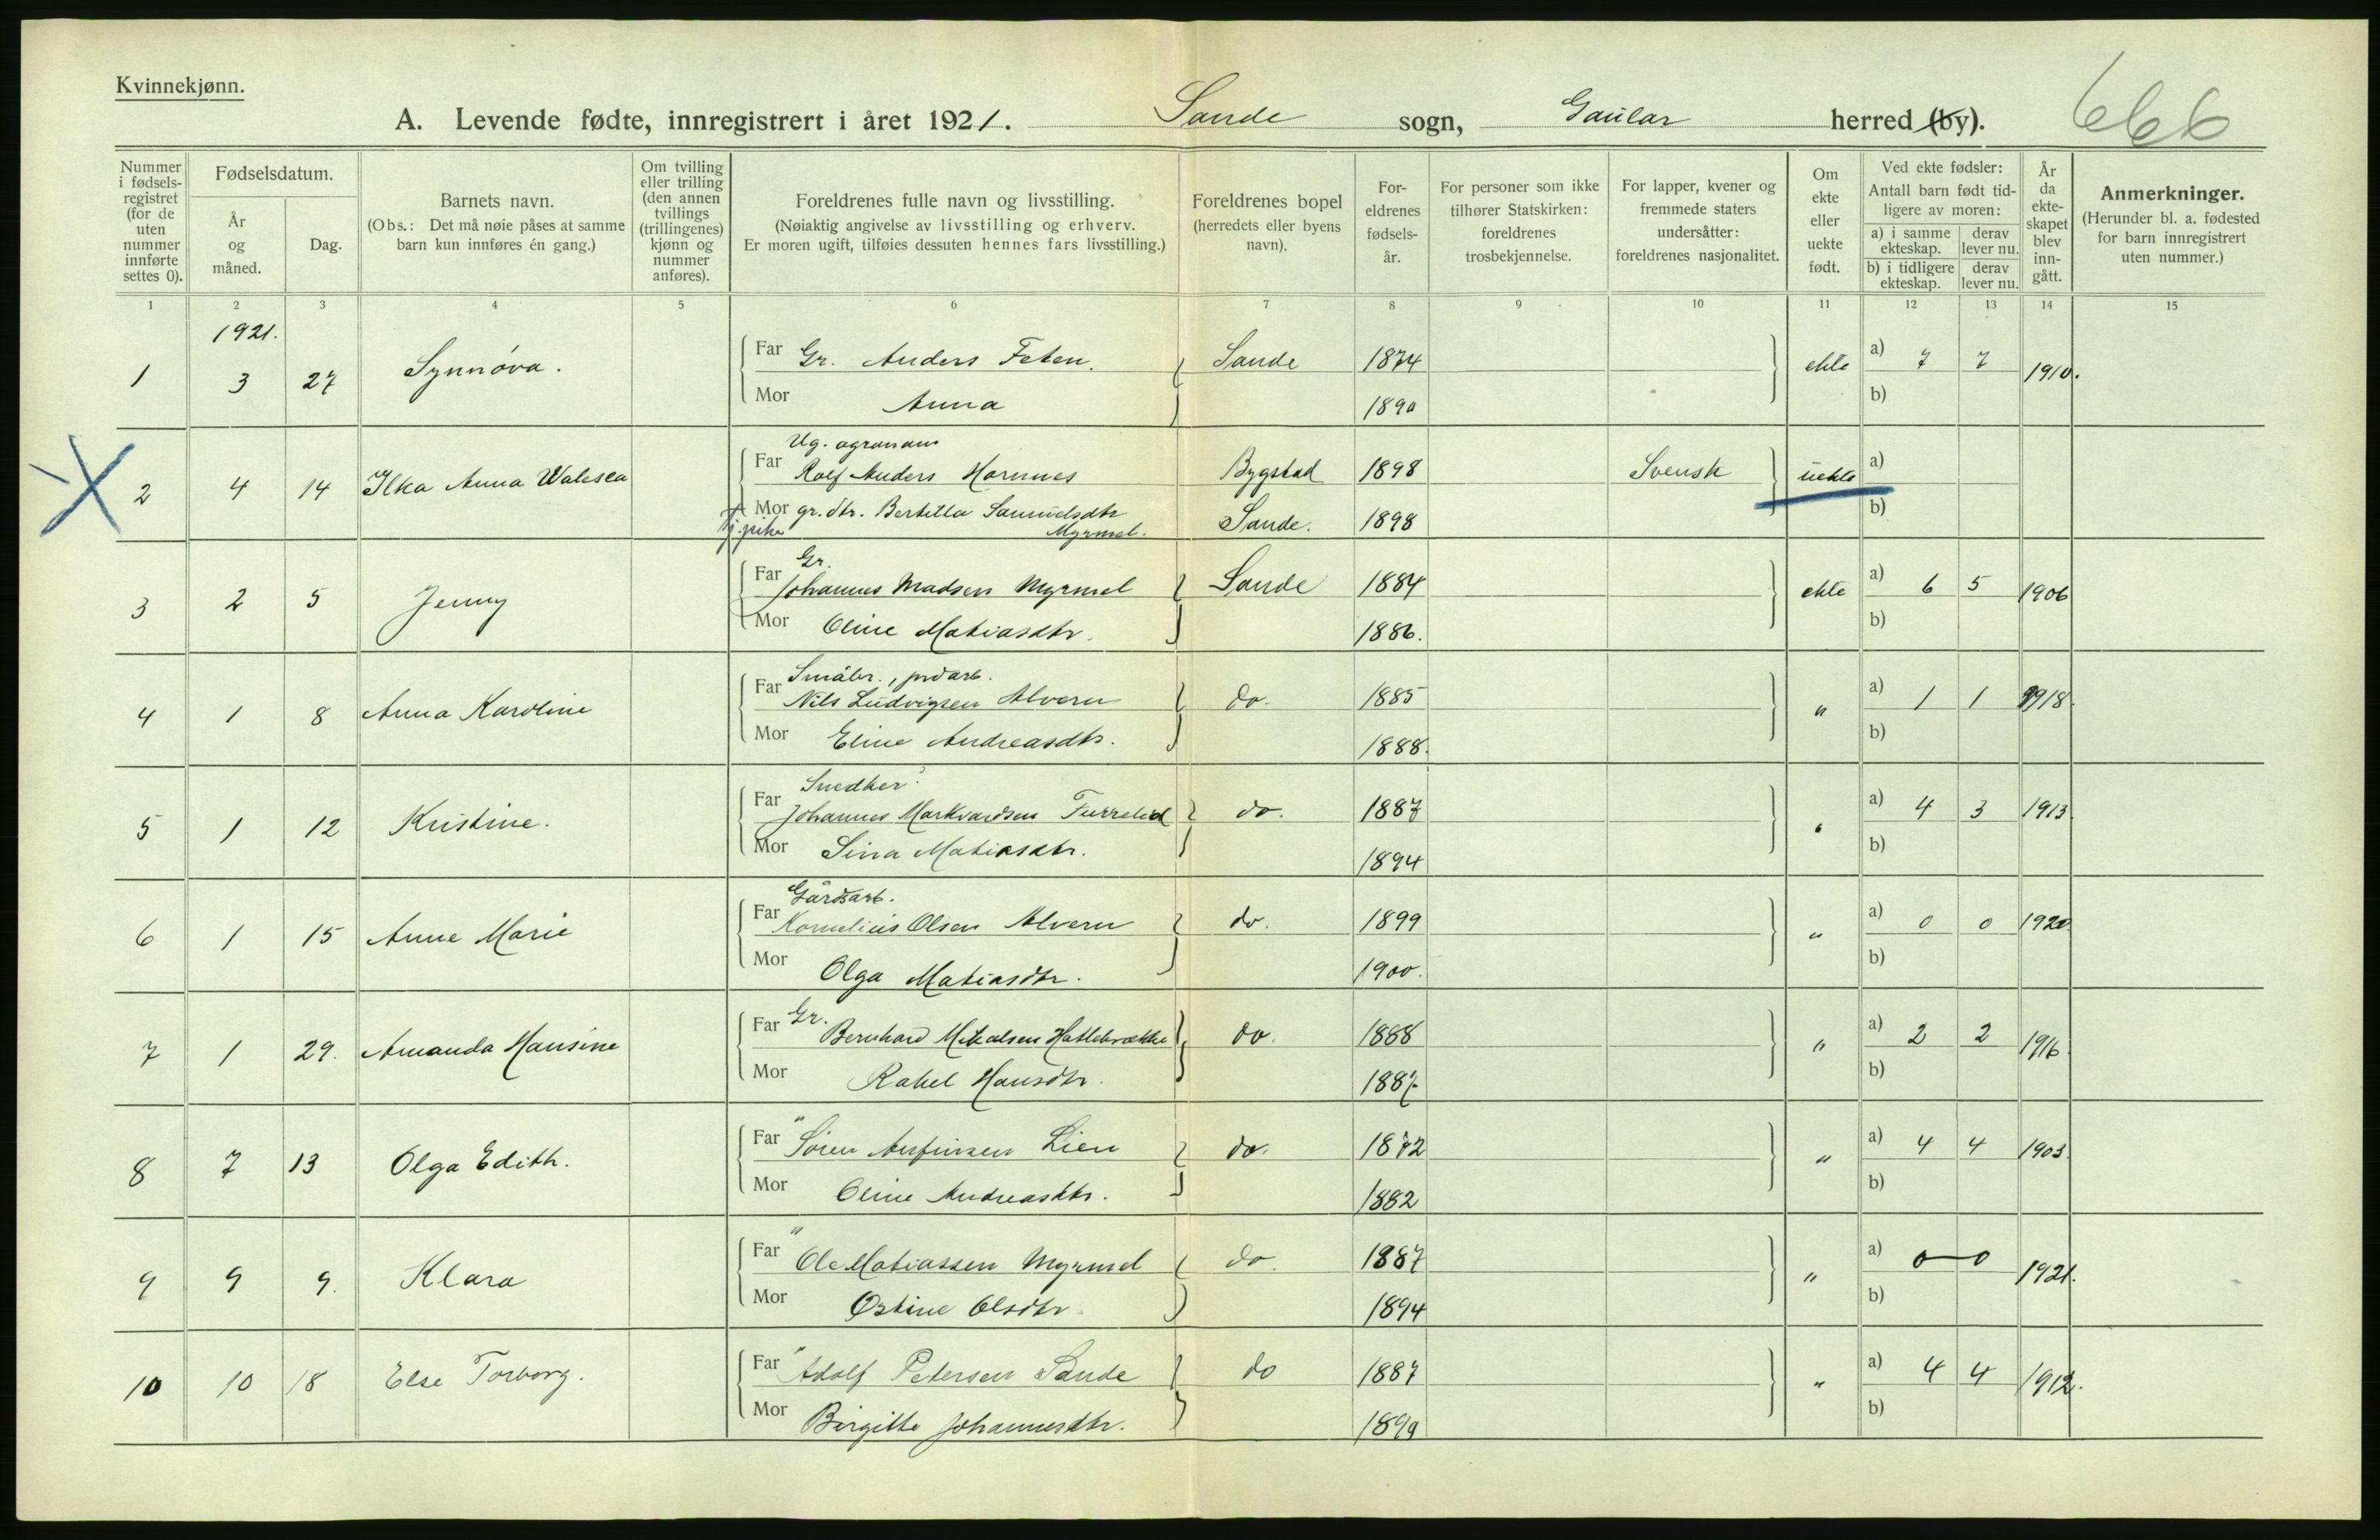 Kvinnekjønn.
A. Levende fødte, innregistrert i året 1921. Sande sogn, Gaular herred (by). 666
Nummer i fødsels-registret (for de uten nummer innførte settes 0).
Fødselsdatum.
År og måned.
Dag.
Barnets navn.
(Obs.: Det må nøie påses at samme barn kun innføres én gang.)
Om tvilling eller trilling (den annen tvillings (trillingenes) kjønn og nummer anføres).
Foreldrenes fulle navn og livsstilling.
(Nøiaktig angivelse av livsstilling og erhverv.
Er moren ugift, tilføies dessuten hennes fars livsstilling.)
Foreldrenes bopel (herredets eller byens navn).
For-eldrenes fødsels-år.
For personer som ikke tilhører Statskirken: foreldrenes trosbekjennelse.
For lapper, kvener og fremmede staters undersåtter: foreldrenes nasjonalitet.
Om ekte eller uekte født.
Ved ekte fødsler:
Antall barn født tid-ligere av moren:
a) i samme ekteskap. derav lever nu.
b) i tidligere ekteskap. derav lever nu.
År da ekte-skapet blev inn-gått.
Anmerkninger.
(Herunder bl. a. fødested for barn innregistrert uten nummer.)
1 2 3 4 5 6 7 8 9 10 11 12 13 14 15
1921.
1 3 27 Synnóva. Far Gr. Anders Feten. Sande 1874 ekte a) 7 7 1910.
Mor Anna 1890 b)
Ug. agronom
2 4 14 Ilka Anna Walesca Far Rolf Anders Hornnes Bygstad 1898 Svensk uekte a)
Mor gr. dtr. Bertilla Samuelsdtr Sande. 1898 b)
pike Myrmel.
Gr.
3 2 5 Jenny Far Johannes Madsen Myrmel Sande 1884 ekte a) 6 5 1906
Mor Oline Matiasdtr. 1886. b)
Småbr., jordarb.
4 1 8 Anna Karoline Far Nils Ludvigsen Alvern do. 1885 " a) 1 1 1918.
Mor Eline Andreasdtr. 1888. b)
Snedker.
5 1 12 Kristine. Far Johannes Markvardsen Furrelid do. 1887 " a) 4 3 1913.
Mor Sina Matiasdtr. 1894 b)
Gårdsarb.
6 1 15 Anne Marie Far Kornelius Olsen Alvern do. 1899 " a) 0 0 1920.
Mor Olga Matiasdtr. 1900. b)
7 1 29. Amanda Hansine Far Gr. Bernhard Mikalsen Hatlebrekke do. 1888 " a) 2 2 1916
Mor Rakel Hansdtr. 1887 b)
8 7 13 Olga Edith. Far " Sören Anfinsen Lien do. 1872 " a) 4 4 1903.
Mor Oline Andreasdtr. 1882 b)
9 9 9. Klara Far " Ole Matiassen Myrmel do. 1887 " a) 0 0 1921.
Mor Østine Olsdtr. 1894 b)
10 10 18 Else Torborg. Far " Adolf Petersen Sande do 1887 " a) 4 4 1912.
Mor Birgitte Johannesdtr. 1890 b)